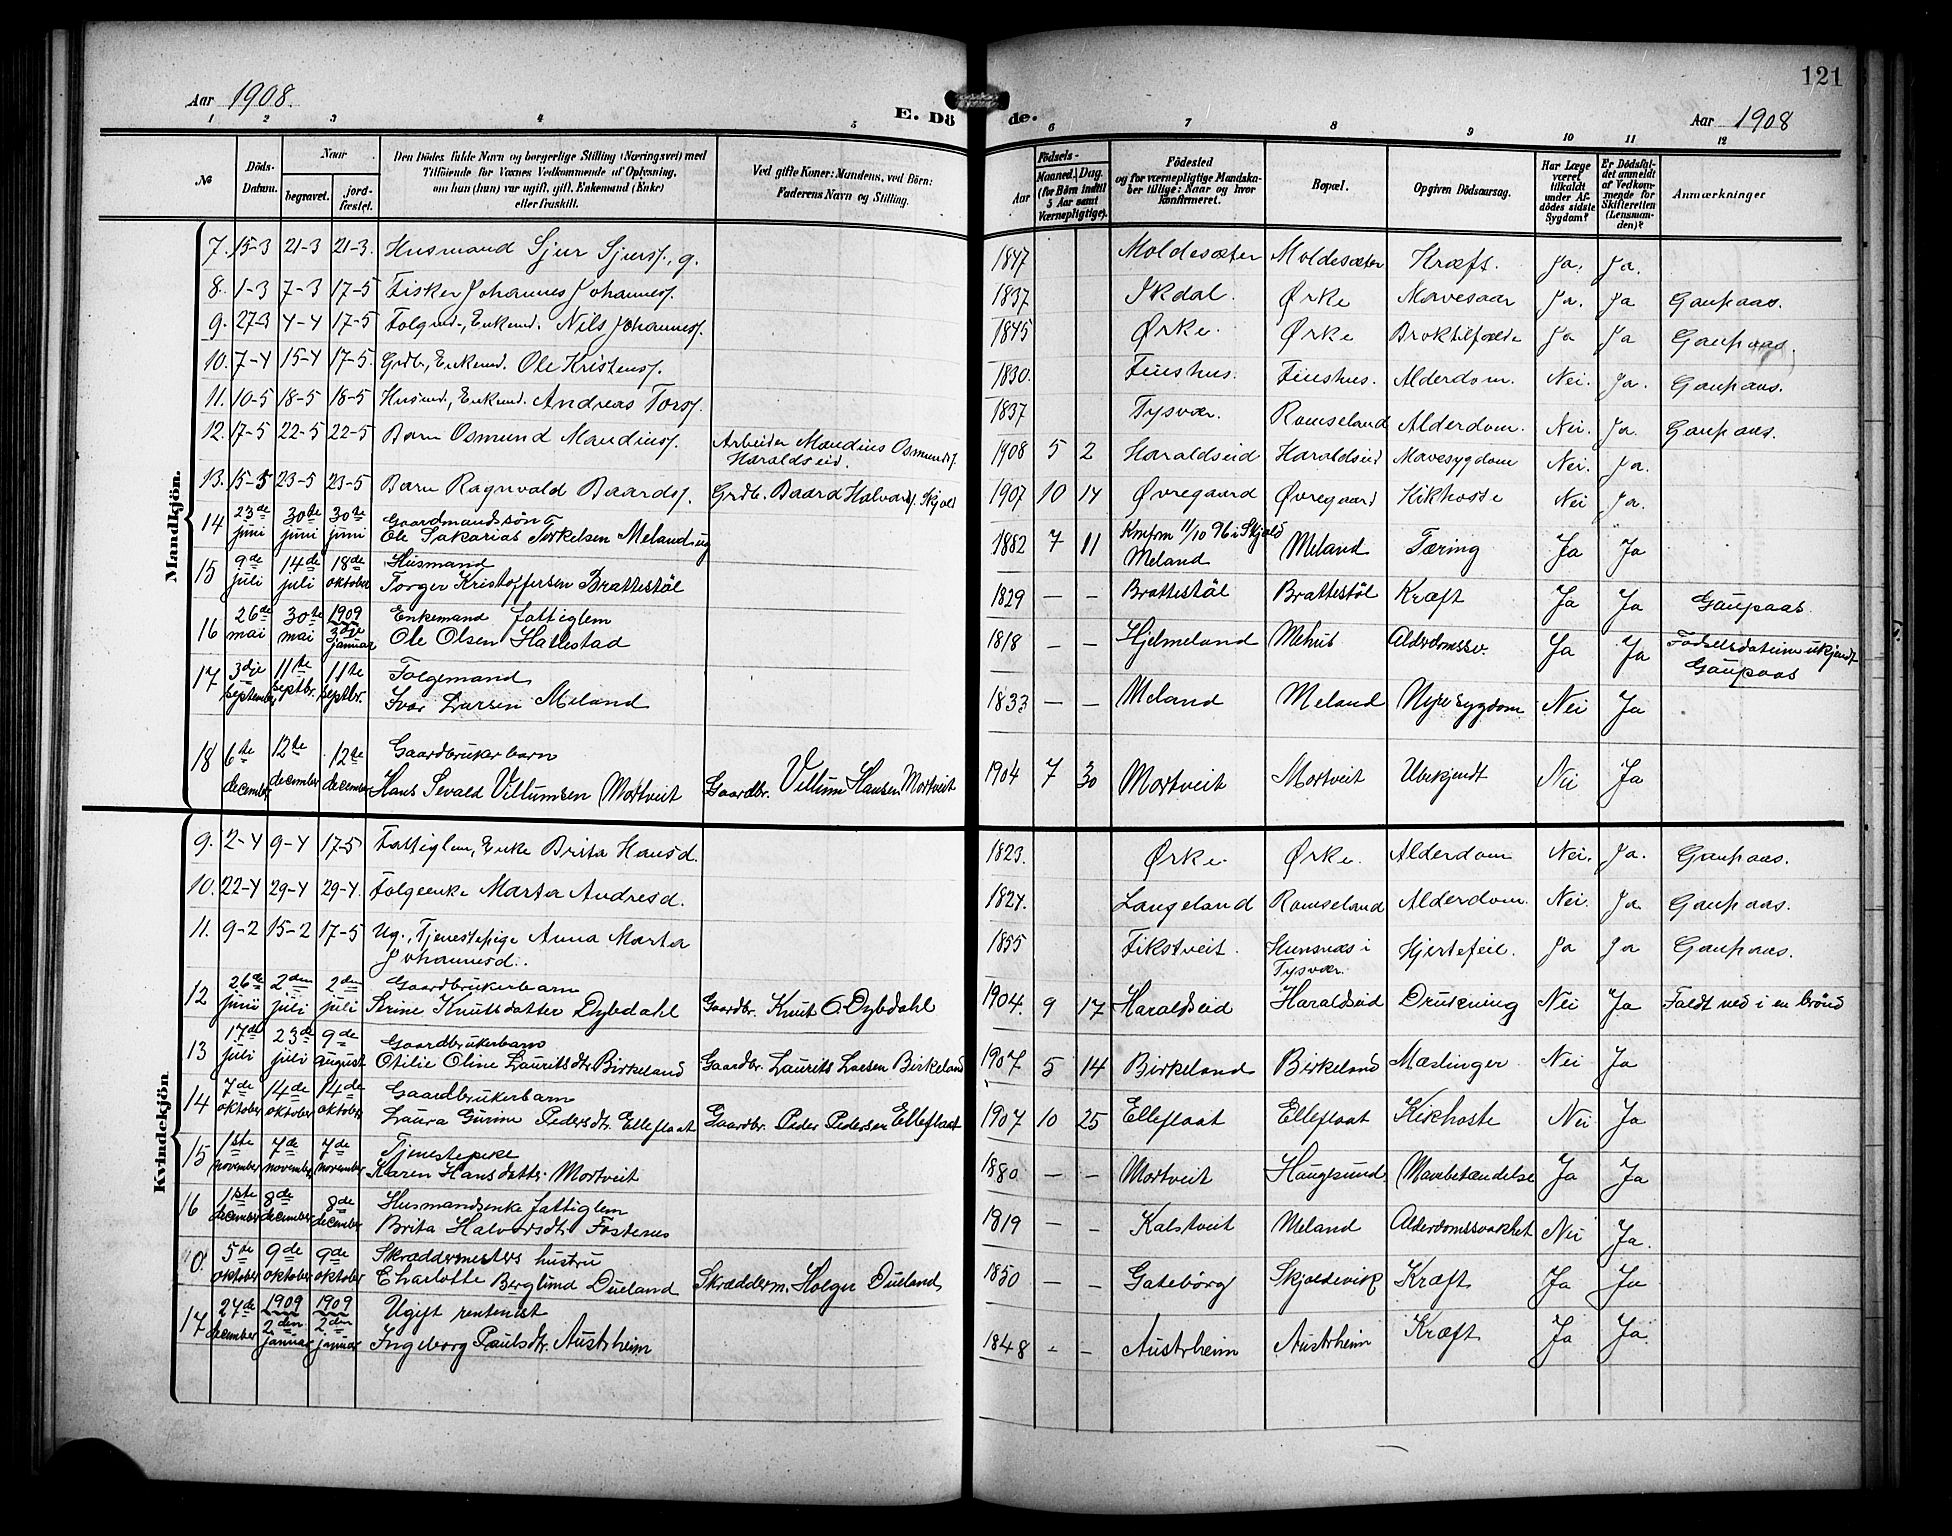 121
Aar 1908.
E. Döde.
Aar 1908
1 2 3 4 5 6 7 8 9 10 11 12
No
Döds-Datum.
Naar
begravet.
jord-fæstet.
Den Dödes fulde Navn og borgerlige Stilling (Næringsvei) med
Tilföiende for Voxnes Vedkommende af Oplysning,
om han (hun) var ugift, gift, Enkemand (Enke)
eller fraskilt.
Ved gifte Koner: Mandens, ved Börn:
Faderens Navn og Stilling.
Födsels-
Aar
Maaned. Dag.
(for Börn indtil
5 Aar samt
Værnepligtige).
Födested
og for værnepligtige Mandska-
ber tillige: Naar og hvor
konfirmeret.
Bopæl.
Opgiven Dödsaarsag.
Har Læge
været
tilkaldt
under Af-
dödes sidste
Sygdom?
Er Dödsfal-
det anmeldt
af Vedkom-
mende for
Skifteretten
(Lensman-
den)?
Anmærkninger
Mandkjön.
7. 15-3 21-3 21-3. Husmand Sjur Sjurss., g. 1847 Moldesæter Moldesæter Kræft. Ja. Ja.
8. 1-3 7-3 17-5 Fisker Johannes Johanness. 1837 Ikdal. Ørke Mavesaar Ja. Ja Gaupaas.
9. 27-3 4-4 17-5 Folgmd., Enkemd. Nils Johanness. 1845 Ørke. Ørke Broktilfælde Ja Ja Gaupaas.
10. 7-4 15-4 17-5. Grdb., Enkemd. Ole Kristenss. 1830. Fineshus. Fineshus. Alderdom. Nei. Ja. Gaupaas.
11. 10-5 18-5 18-5 Husmd., Enkemd. Andreas Torss. 1837 Tysvær. Ramseland Alderdom. Nei. Ja. Gaupaas.
12. 17-5 22-5 22-5 Barn Osmund Mandiuss. Arbeider Mandius Osmunds. 1908 5 2 Haraldseid Haraldseid Mavesygdom Nei. Ja.
Haraldseid.
13. 15-5 23-5 23-5 Barn Ragnvald Baards. Grdb. Baard Halvors. Skjold 1907 10 14 Øvregaard Øvregaard Kikhoste Nei Ja.
14 23de juni 30te juni 30te juni Gaardmandssøn
Ole Sakarias Torkelsen Meland ug 1882 7 11 Knfrm 11/10 96 i Skjold
Meland Meland Tæring Ja Ja
15 9de juli 14de juli 18de oktober Husmand
Torger Kristoffersen Brattestöl 1829 — — Brattestöl Brattestöl Kræft Ja Ja Gaupaas
16 26de mai 30te mai 1909 3dje januar Enkemand fattiglem
Ole Olsen Hallestad 1818 — — Hjelmeland Mehus Alderdomssv. Ja Ja Fødselsdatum ukjendt
Gaupaas
17 3dje september 11te septbr. 11te septbr. Folgemand
Ivar Larsen Meland 1833 — — Meland Meland Nyresygdom Nei Ja
18 6te december 12te december 12te december Gaardbrukerbarn
Hans Sevald Villumsen Mortveit Gaardbr. Villum Hansen Mortveit 1904 7 30 Mortveit Mortveit Ubekjendt Nei Ja
Kvindekjön.
9. 2-4 9-4 17-5 Fattiglem, Enke Brita Hansd. 1823. Ørke. Ørke. Alderdom Nei. Ja. Gaupaas.
10. 22-4 29-4 29-4. Folgeenke Marta Andresd. 1824. Langeland Ramseland Alderdom. Nei. Ja Gaupaas.
11. 9-2 15-2 17-5 Ug., Tjenestepige Anna Marta 1855 Fikstveit. Hunsnæs i Hjertefeil. Ja Ja Gaupaas.
Johannesd. Tysvær.
12 26de juni 2den juli 2den juli Gaardbrukerbarn
Serine Knutsdatter Dybdahl Gaardbr. Knut O Dybdahl 1904. 9 17 Haraldseid Haraldseid Drukning Nei Ja Faldt ned i en brönd
13 17de juli 23de juli 9de august Gaardbrukerbarn
Otilie Oline Lauritsdtr. Birkeland Gaardbr. Laurits Larsen Birkeland 1907. 5 14 Birkeland Birkeland Mæslinger Nei Ja
14 7de oktober 14de oktober 14de oktober Gaardbrukerbarn
Laura Gurine Pedersdtr. Elleflaat Gaardbr. Peder Pedersen Elleflaat 1907 10 25 Elleflaat Elleflaat Kikhoste Nei Ja
15 1ste november 7de november 7de november Tjenestepike
Karen Hansdattr. Mortveit 1880 — — Mortveit Haugesund Mavebetændelse Ja Ja
16 1ste december 8de december 8de december Husmandsenke fattiglem
Brita Halvorsdtr. Fosenes 1819 — — Kalstveit Meland Alderdomssvakhet Nei Ja.
5te oktober 9de oktober 9de oktober Skræddermesters hustru
Charlotte Berglund Dueland Skrædderm. Holger Dueland 1850 — — Gøteborg Skjoldevik Kræft Ja Ja
17 24de december 1909 2den januar 1909 2den januar Ugift rentenist
Ingeborg Paulsdtr. Austrheim 1848 - - Austrheim Austrheim Kræft Ja Ja.